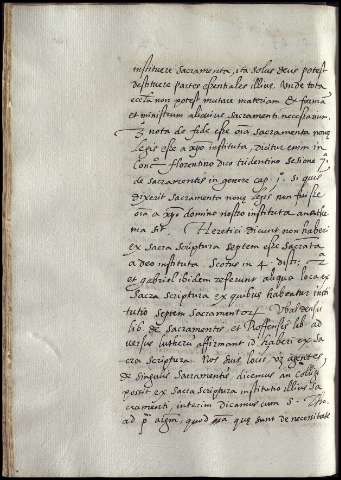 instituere sacramenta, ita solus deus potest
destituere partes essentiales illius. Unde tota
eccla non potest mutare materiam et formã
et ministrum alicuius sacramenti necessarium.
nota de fide esse oia sacramenta noue
legis esse a xpo instituta, dicitur enim in
Conc. florentino dico tridentino sesione 7.
de sacramentis in genere cap. j. si quis
dixerit sacramenta noue legis non fuisse
oia a xpo domino nostro instituta anathe
ma sit. Heretici dicunt non haberi
ex sacra scriptura septem esse sacrata
a deo instituta. Scotus in 4. dist.
et gabriel ibidem referunt aliqua loca ex
sacra scriptura ex quibus habeatur insti
tutio septem sacramentorũ. Ubaldensis
lib. de sacramentis, et Roffensis lib. ad
uersus lutherũ affirmant id haberi ex sa
cra scriptura. Nos suis locis,
de singulis sacramentis, dicemus an colligi
possit ex sacra scriptura institutio illius sa
cramenti, interim dicamus cum S. Tho.
ad p. argm. quod que sunt de necesitate